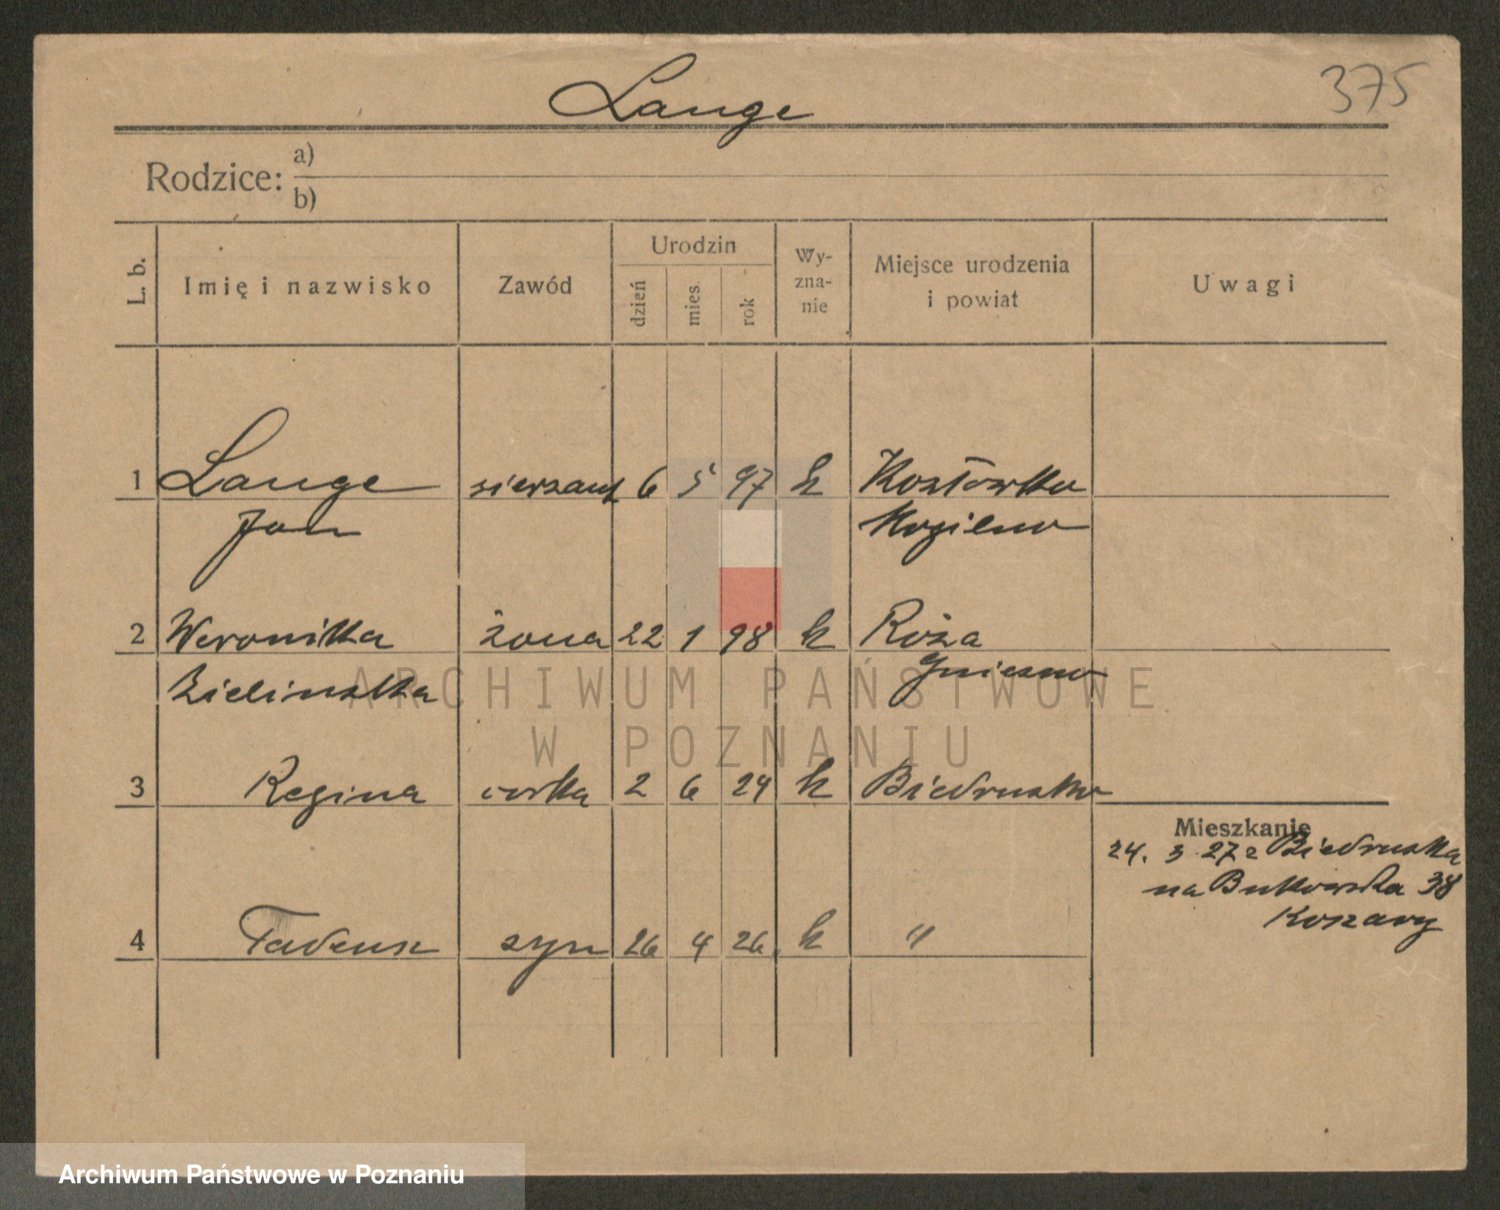 Lange
375
Rodzice: a)
b)
L. b. Imię i nazwisko Zawód Urodzin dzień mies. rok Wy-zna-nie Miejsce urodzenia i powiat Uwagi
1 Lange sierzant 6 5 97 k Kozłowka
Jan Mogilno
2 Weronika żona 22 1 98 k Róża
Zielinska Gniezno
ARCHIWUM PAŃSTWOWE
W POZNANIU
3 Regina corka 2 6 24 k Biedrusko
Mieszkanie
24. 3 27 z Biedruska
na Bukowska 38
Koszary
4 Tadeusz syn 26 4 26 k "
Archiwum Państwowe w Poznaniu